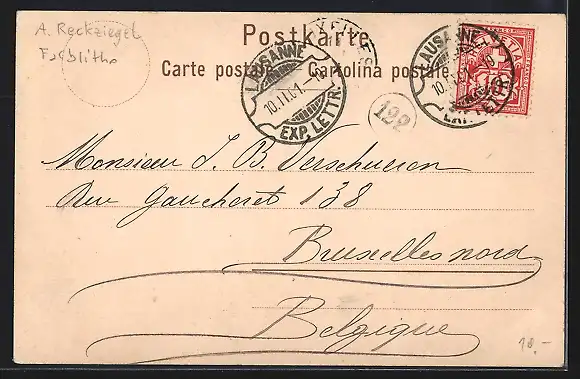 A. Reckziegel
Farblitho
Postkarte
Carte postale. Cartolina postale.
LAUSANNE
10.II.01.
EXP. LETTR.
LAUSANNE
EXP. LETTR.
122
Monsieur J. B. Verschueren
Rue Gaucheret 138
Bruxelles nord
Belgique
10.-